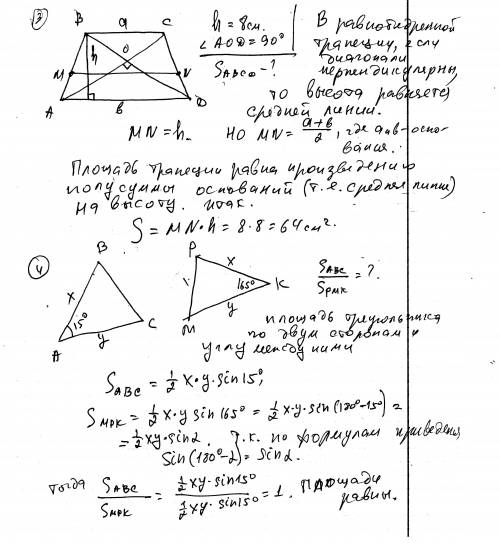 ③ B a C h = 8см. В равнобедренной
∠AOD = 90° трапеции, если
h O S ABCD - ? диагонали
M N перпендикулярны,
A b D то высота равняется
средней линии.
MN = h. но MN = a+b/2, где a и b - осно-
вания.
Площадь трапеции равна произведению
полусуммы оснований (т.е. средняя линия)
на высоту. итак.
S = MN·h = 8·8 = 64 см².
④ B P x K S ABC / S PMK = ?
x 15° y C 165° y
A M площадь треугольника
по двум сторонам и
углу между ними
S ABC = 1/2 x·y·sin15°,
S MPK = 1/2 x·y sin165° = 1/2 x·y·sin(180°-15°) =
= 1/2 xy·sin2. Т.к. по формулам приведения
sin(180°-2) = sin2.
тогда S ABC / S MPK = 1/2 xy·sin15° / 1/2 xy·sin15° = 1. Площади
равны.